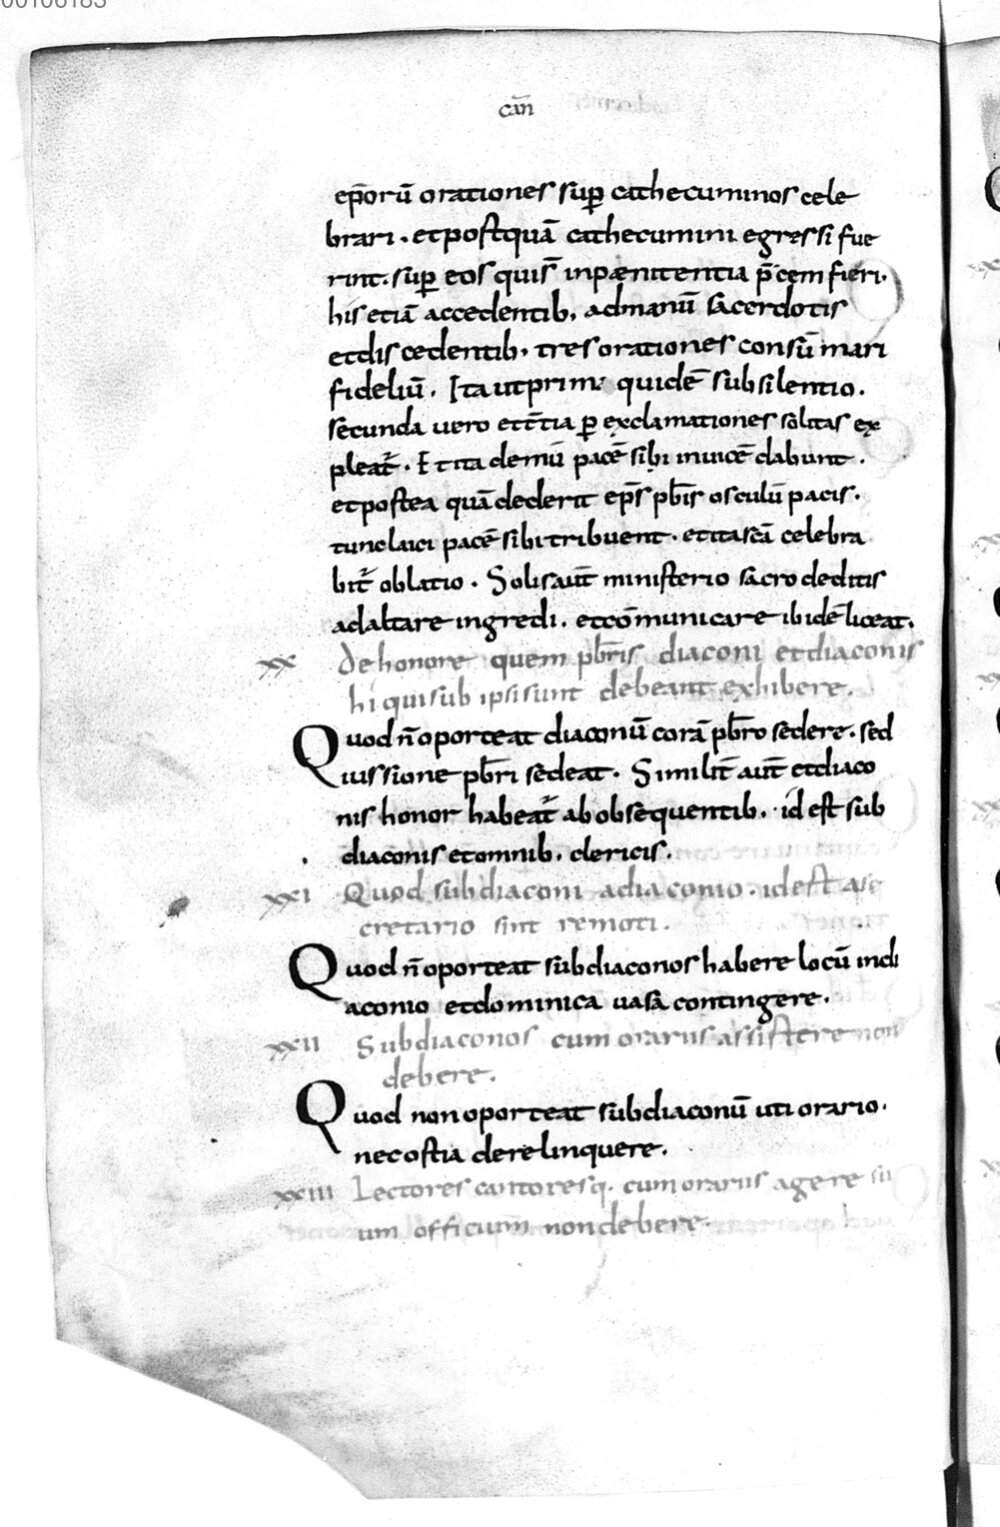 00106183
cāñ
ep̄orū orationes sup̱ cathecuminos cele
brari . et postquā cathecumini egressi fue
rint . sup̱ eos qui s̄ in pænitentia p̄cem fieri .
his etiā accedentib, ad manū sacerdotis
et discedentib, tres orationes consūmari
fideliū . Ita ut prima quidē sub silentio .
secunda uero et t̄tia p̱ exclamationes solitas ex
pleat᷑ . Et ita demū pacē sibi inuicē dabunt .
et postea quā dederit ep̄s pb̄is osculū pacis .
tunc laici pacē sibi tribuent . et ita sc̄a celebra
bit᷑ oblatio . Solis aut̄ ministerio sacro deditis
ad altare ingredi . et cōmunicare ibidē liceat .
xx De honore quem pb̄ris diaconi et diaconis
hi qui sub ipsi sunt debeant exhibere .
Quod n̄ oporteat diaconū corā pb̄ro sedere . sed
iussione pb̄ri sedeat . Similit̄ aut̄ et diaco
nis honor habeat᷑ ab obsequentib, . id est sub
diaconis et omnib, clericis .
xxi Quod subdiaconi a diaconio . id est a se
cretario sint remoti .
Quod n̄ oporteat subdiaconos habere locū in di
aconio et dominica uasa contingere .
xxii Subdiaconos cum orariis assistere non
debere .
Quod non oporteat subdiaconū uti orario .
nec ostia derelinquere .
xxiii Lectores cantoresq. cum orariis agere su
um officium non debere .